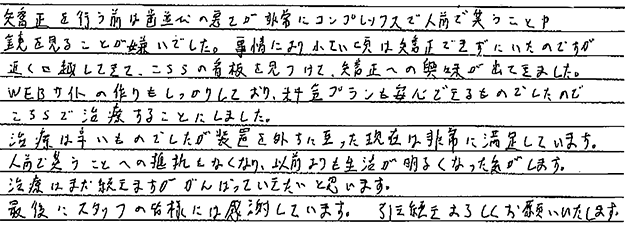 矯正を行う前は歯並びの見た目が非常にコンプレックスで人前で笑うことや
鏡を見ることが嫌いでした。事情により小さい頃は矯正できずにいたのですが
近くに越してきて、こちらの看板を見つけて、矯正への興味が出てきました。
WEBサイトの作りもしっかりしており、料金プランも安心できるものでしたので
こちらで治療することにしました。
治療は辛いものでしたが装置を外すに至った現在は非常に満足しています。
人前で笑うことへの抵抗もなくなり、以前よりも生活が明るくなった気がします。
治療はまだ続きますががんばっていきたいと思います。
最後にスタッフの皆様には感謝しています。 引き続きよろしくお願いいたします。